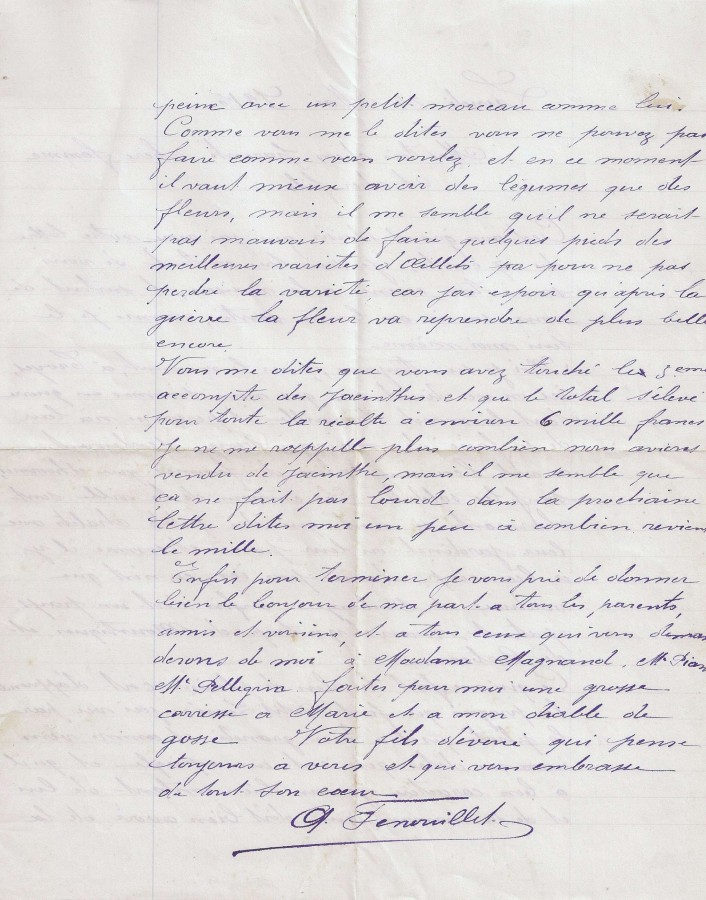 peine avec un petit morceau comme lui.
Comme vous me le dites vous ne pouvez pas
faire comme vous voulez, et en ce moment
il vaut mieux avoir des légumes que des
fleurs, mais il me semble qu'il ne serait
pas mauvais de faire quelques pieds des
meilleures varietes d'Œillets pour ne pas
perdre la varieté, car j'ai espoir qu'après la
guerre la fleur va reprendre de plus belle
encore.
Vous me dites que vous avez touché le 3eme
accompte des Jacinthes et que le total s'élève
pour toute la récolte à environ 6 mille francs
Je ne me rappelle plus combien nous avions
vendu de Jacinthe, mais il me semble que
ça ne fait pas lourd, dans la prochaine
lettre dites moi un peu à combien revient
le mille.
Enfin pour terminer je vous prie de donner
bien le bonjour de ma part a tous les parents,
amis et voisins, et a tous ceux qui vous deman
derons de moi à Madame Magnand, Mr
Mr Pellegrin. Faites pour moi une grosse
carresse a Marie et a mon diable de
gosse Votre fils dévoué qui pense
toujours a vous et qui vous embrasse
de tout son cœur
A. Fenouillet